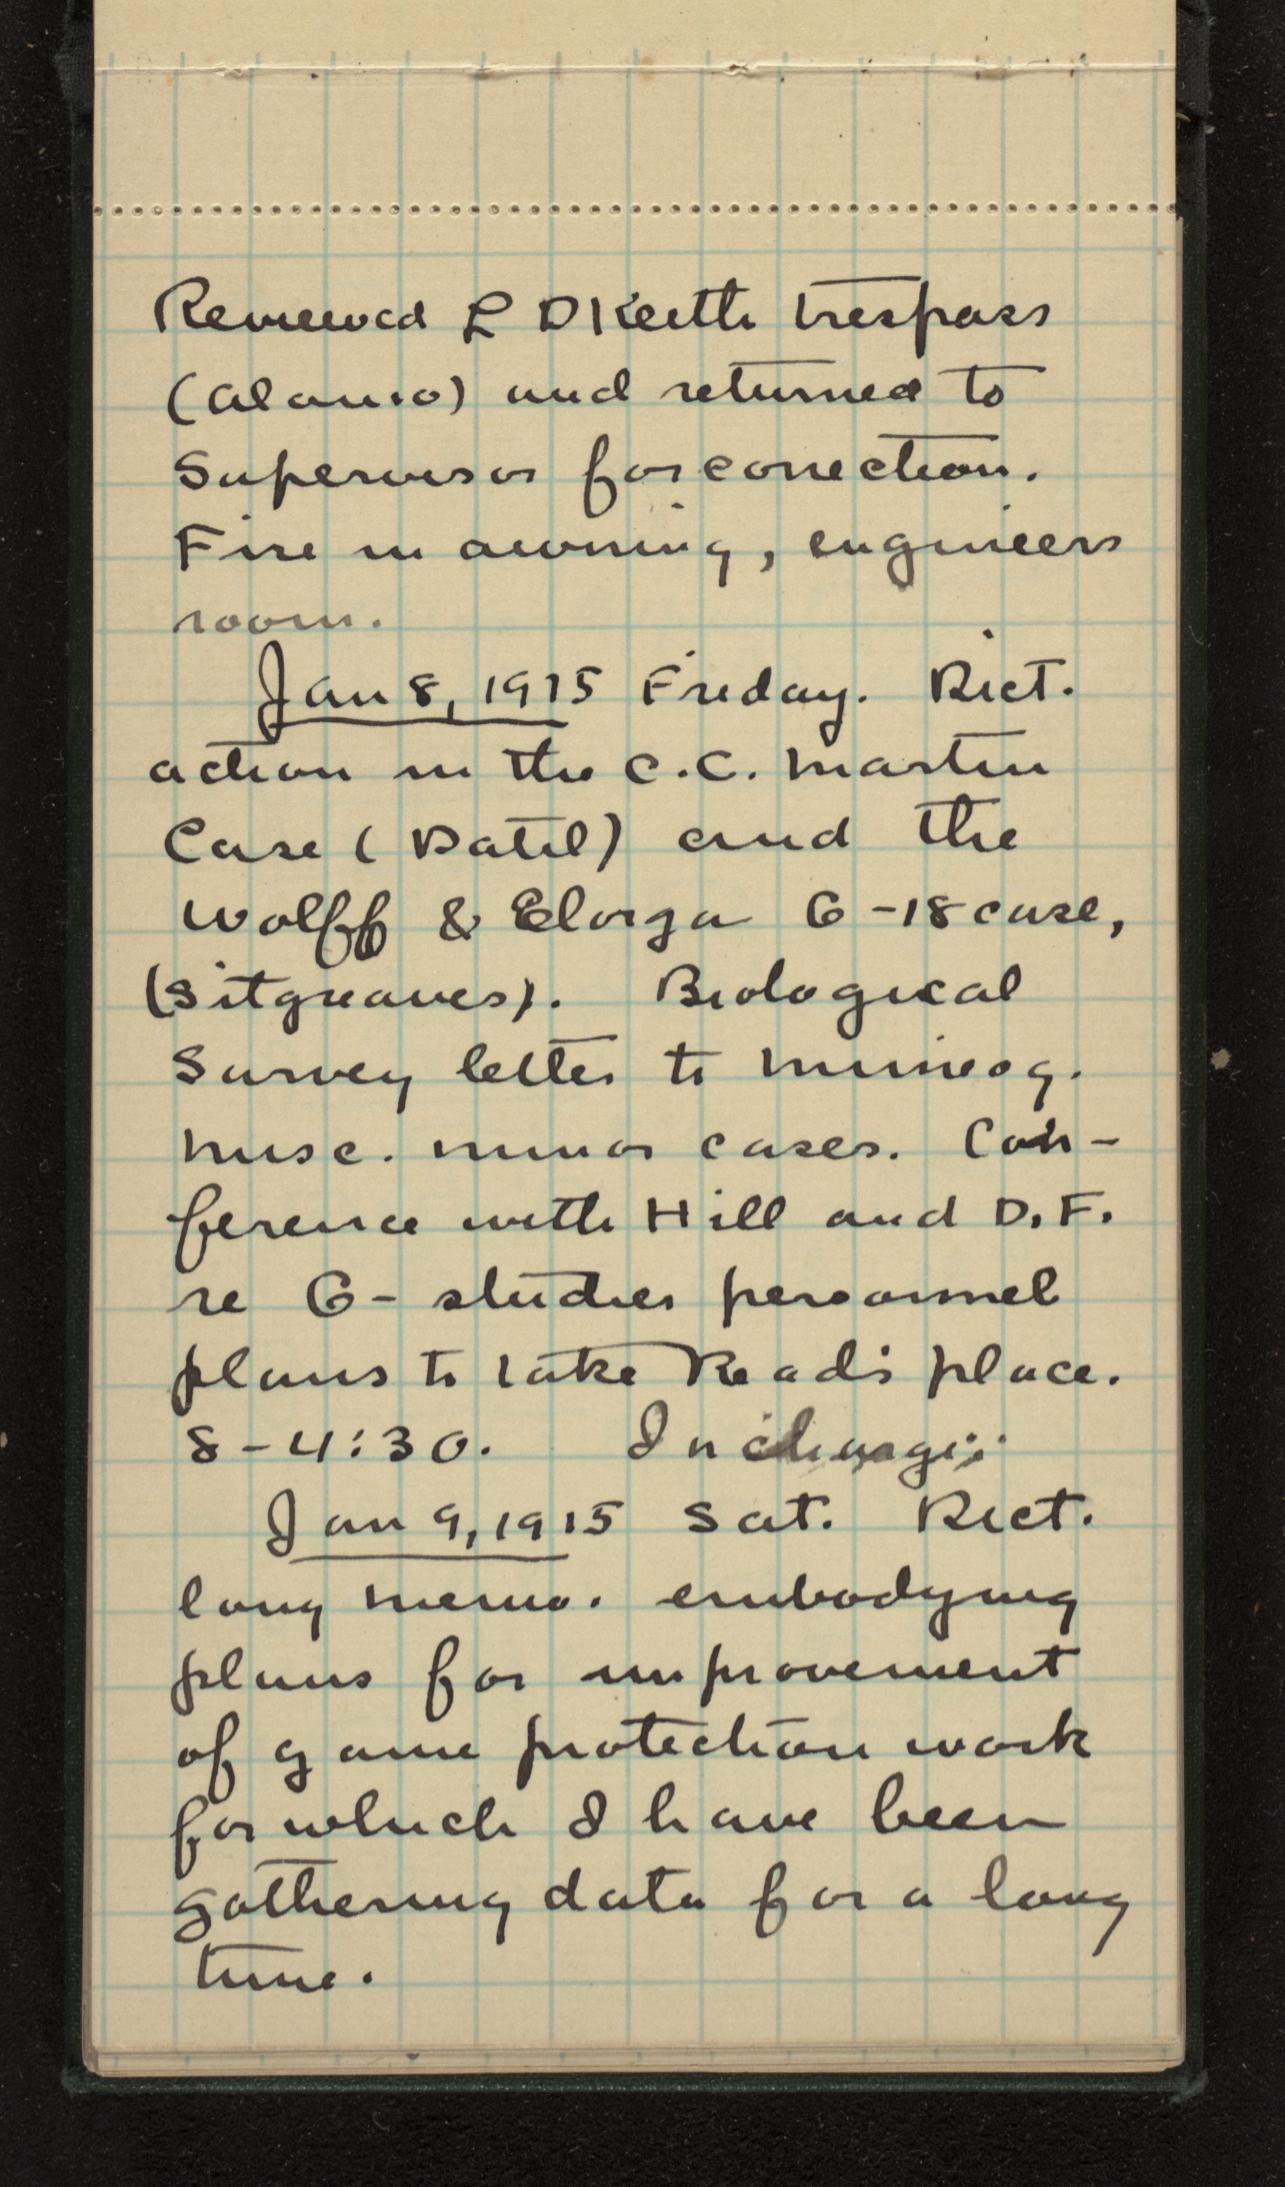 Reviewed L D Keith trespass
(Alamo) and returned to
Supervisor for correction.
Fire in awning, engineers
room.
Jan 8, 1915 Friday. Dict.
action in the C.C. Martin
Case (Datil) and the
Wolff & Elorga G-18 case,
(Sitgreaves). Biological
Survey letter to mimeog.
Misc. minor cases. Con-
ference with Hill and D.F.
re G- studies personnel
plans to take Read's place.
8-4:30. In charge.
Jan 9, 1915 Sat. Dict.
long memo. embodying
plans for improvement
of game protection work
for which I have been
gathering data for a long
time.